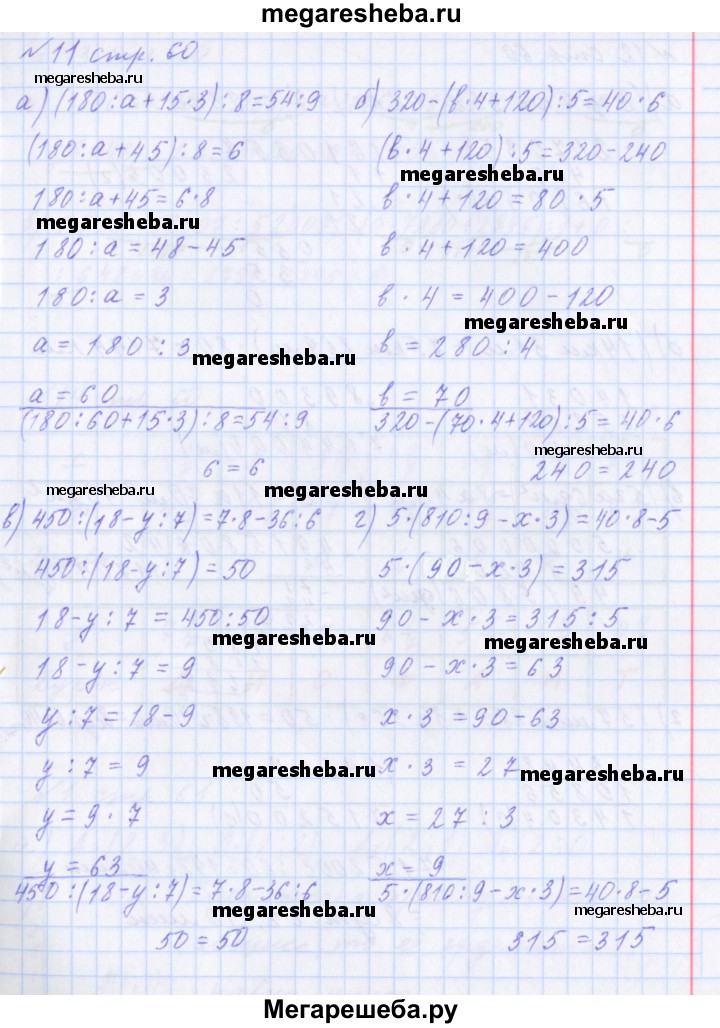 megaresheba.ru
№11 стр. 60
megaresheba.ru
а) (180:а+15·3):8=54:9
(180:а+45):8=6
180:а+45=6·8
megaresheba.ru
180:а=48-45
180:а=3
а=180:3
megaresheba.ru
а=60
(180:60+15·3):8=54:9
6=6
megaresheba.ru
б) 320-(в·4+120):5=40·6
(в·4+120):5=320-240
megaresheba.ru
в·4+120=80·5
в·4+120=400
в·4=400-120
megaresheba.ru
в=280:4
в=70
320-(70·4+120):5=40·6
megaresheba.ru
240=240
megaresheba.ru
в) 450:(18-у:7)=7·8-36:6
450:(18-у:7)=50
18-у:7=450:50
megaresheba.ru
18-у:7=9
у:7=18-9
у:7=9
megaresheba.ru
у=9·7
у=63
450:(18-у:7)=7·8-36:6
megaresheba.ru
50=50
г) 5·(810:9-х·3)=40·8-5
5·(90-х·3)=315
90-х·3=315:5
megaresheba.ru
90-х·3=63
х·3=90-63
х·3=27
megaresheba.ru
х=27:3
х=9
5·(810:9-х·3)=40·8-5
megaresheba.ru
315=315
Мегарешеба.ру